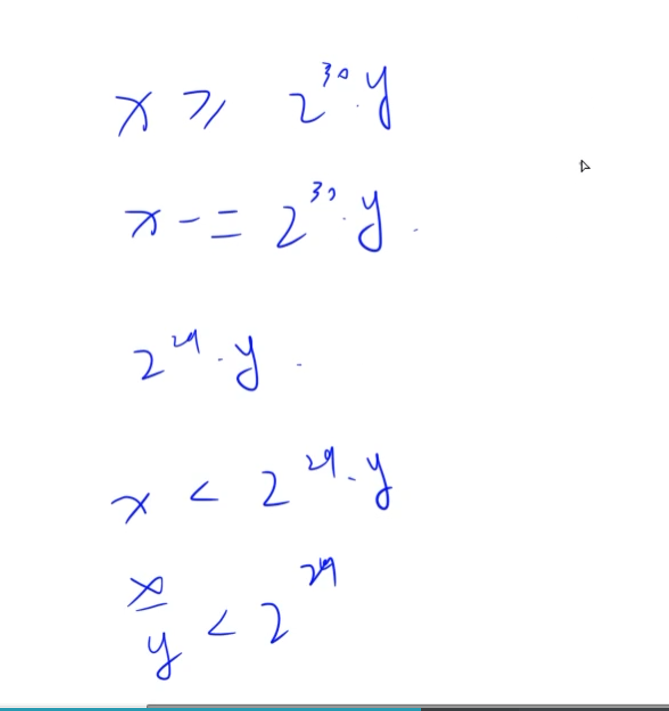 x ⩾ 2³⁰·y
x -= 2³⁰·y.
2²⁹·y.
x < 2²⁹·y
x/y < 2²⁹